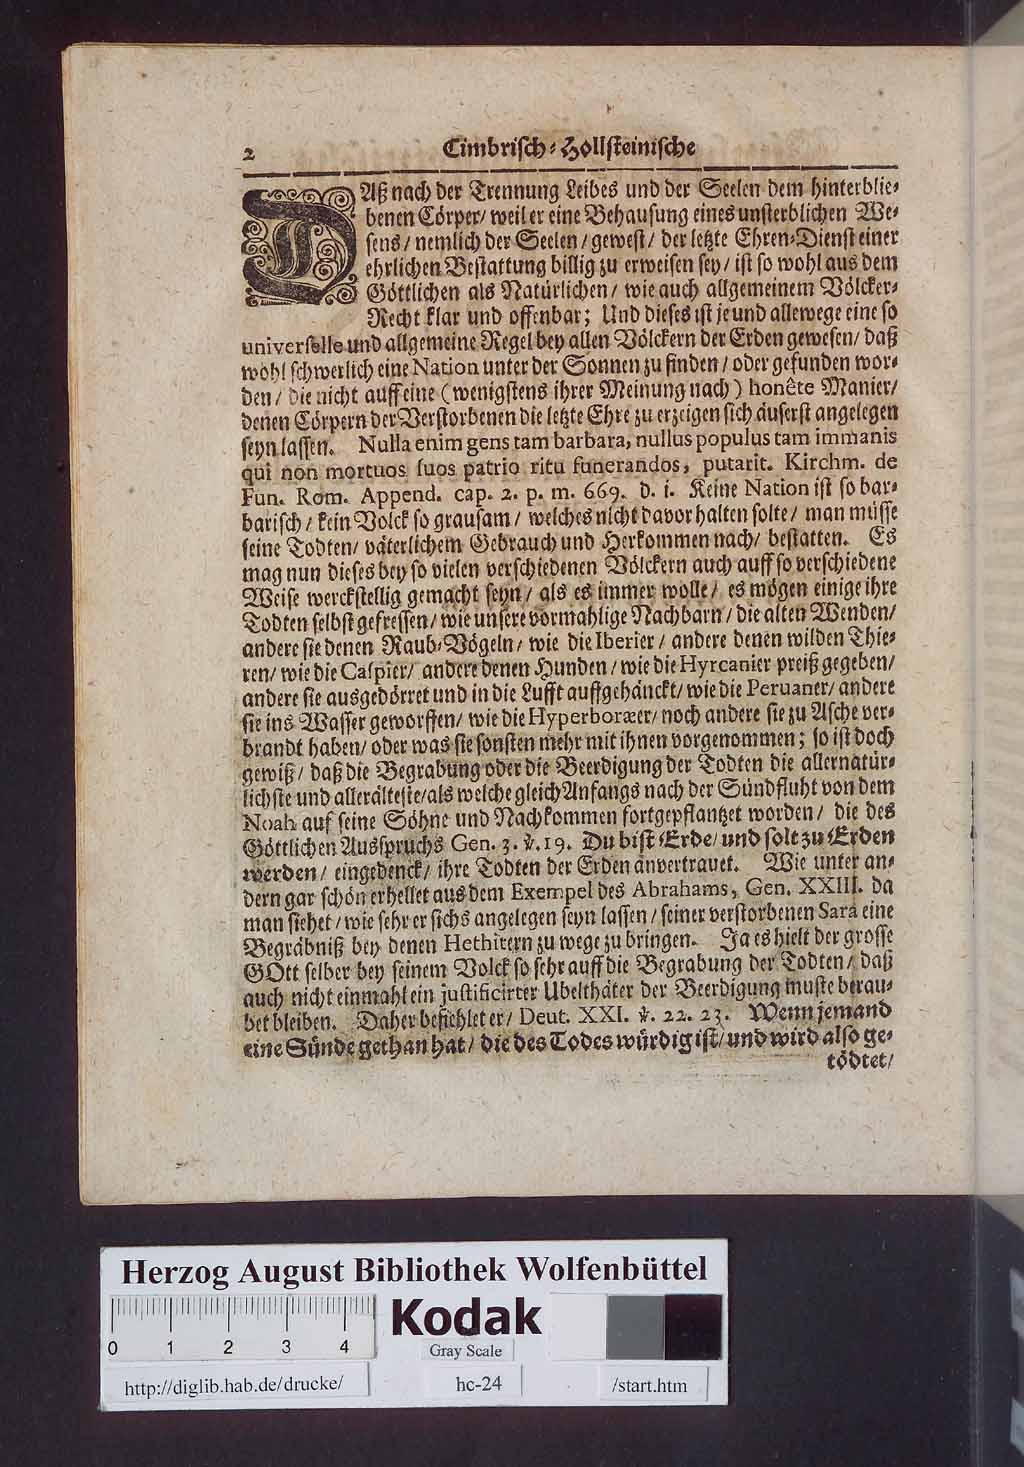 2 Cimbrisch-Hollsteinische
DAß nach der Trennung Leibes und der Seelen dem hinterblie-
benen Cörper/ weil er eine Behausung eines unsterblichen We-
sens/ nemlich der Seelen/ gewest/ der letzte Ehren-Dienst einer
ehrlichen Bestattung billig zu erweisen sey/ ist so wohl aus dem
Göttlichen als Natürlichen/ wie auch allgemeinem Völcker-
Recht klar und offenbar; Und dieses ist je und allewege eine so
universelle und allgemeine Regel bey allen Völckern der Erden gewesen/ daß
wohl schwerlich eine Nation unter der Sonnen zu finden/ oder gefunden wor-
den/ die nicht auff eine (wenigstens ihrer Meinung nach) honête Manier/
denen Cörpern der Verstorbenen die letzte Ehre zu erzeigen sich äuserst angelegen
seyn lassen. Nulla enim gens tam barbara, nullus populus tam immanis
qui non mortuos suos patrio ritu funerandos, putarit. Kirchm. de
Fun. Rom. Append. cap. 2. p. m. 669. d. i. Keine Nation ist so bar-
barisch/ kein Volck so grausam/ welches nicht davor halten solte/ man müsse
seine Todten/ väterlichem Gebrauch und Herkommen nach/ bestatten. Es
mag nun dieses bey so vielen verschiedenen Völckern auch auff so verschiedene
Weise werckstellig gemacht seyn/ als es immer wolle/ es mögen einige ihre
Todten selbst gefressen/ wie unsere vormahlige Nachbarn/ die alten Wenden/
andere sie denen Raub-Vögeln/ wie die Iberier/ andere denen wilden Thie-
ren/ wie die Caspier/ andere denen Hunden/ wie die Hyrcanier preiß gegeben/
andere sie ausgedörret und in die Lufft auffgehänckt/ wie die Peruaner/ andere
sie ins Wasser geworffen/ wie die Hyperboræer/ noch andere sie zu Asche ver-
brandt haben/ oder was sie sonsten mehr mit ihnen vorgenommen; so ist doch
gewiß/ daß die Begrabung oder die Beerdigung der Todten die allernatür-
lichste und allerälteste/ als welche gleich Anfangs nach der Sündfluht von dem
Noah auf seine Söhne und Nachkommen fortgepflantzet worden/ die des
Göttlichen Ausspruchs Gen. 3. ℣. 19. Du bist Erde/ und solt zu Erden
werden/ eingedenck/ ihre Todten der Erden anvertrauet. Wie unter an-
dern gar schön erhellet aus dem Exempel des Abrahams, Gen. XXIII. da
man siehet/ wie sehr er sichs angelegen seyn lassen/ seiner verstorbenen Sara eine
Begräbniß bey denen Hethitern zu wege zu bringen. Ja es hielt der grosse
GOtt selber bey seinem Volck so sehr auff die Begrabung der Todten/ daß
auch nicht einmahl ein justificirter Ubelthäter der Beerdigung muste berau-
bet bleiben. Daher befiehlet er/ Deut. XXI. ℣. 22. 23. Wenn jemand
eine Sünde gethan hat/ die des Todes würdig ist/ und wird also ge-
tödtet/
Herzog August Bibliothek Wolfenbüttel
0 1 2 3 4
Kodak
Gray Scale
http://diglib.hab.de/drucke/
hc-24
/start.htm